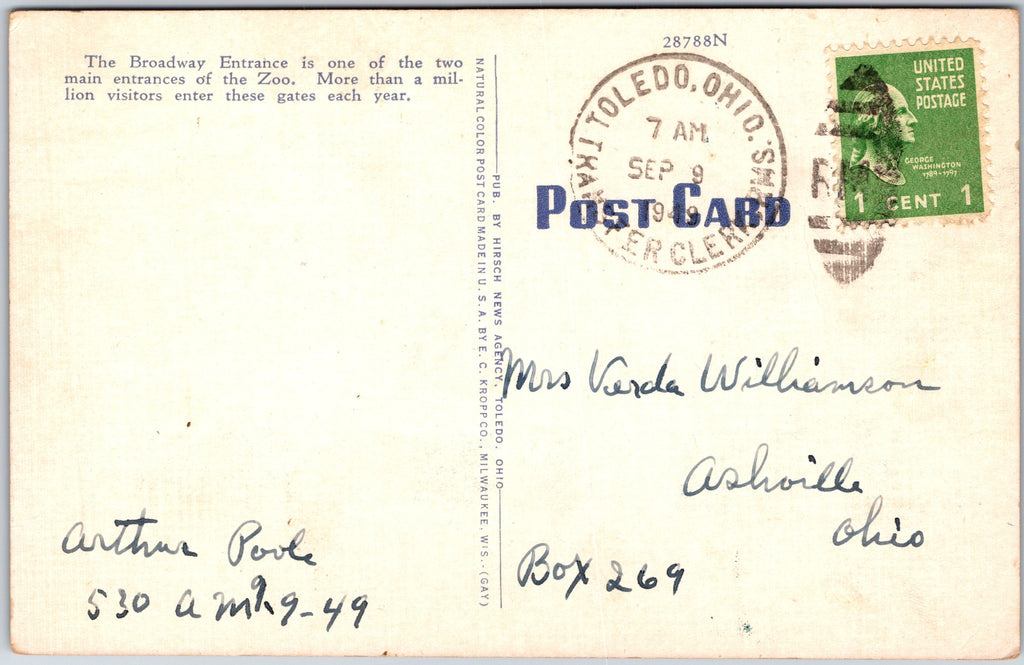 The Broadway Entrance is one of the two
main entrances of the Zoo. More than a mil-
lion visitors enter these gates each year.
Arthur Poole
530 a m 9-49
NATURAL COLOR POST CARD MADE IN U.S.A. BY E. C. KROPP CO., MILWAUKEE, WIS. (GAY)
PUB. BY HIRSCH NEWS AGENCY, TOLEDO, OHIO
28788N
TOLEDO, OHIO.
7 AM
SEP 9
1949
CLERK
POST CARD
UNITED
STATES
POSTAGE
GEORGE
WASHINGTON
1789-1797
1 CENT 1
Mrs Verda Williamson
Ashville
Ohio
Box 269